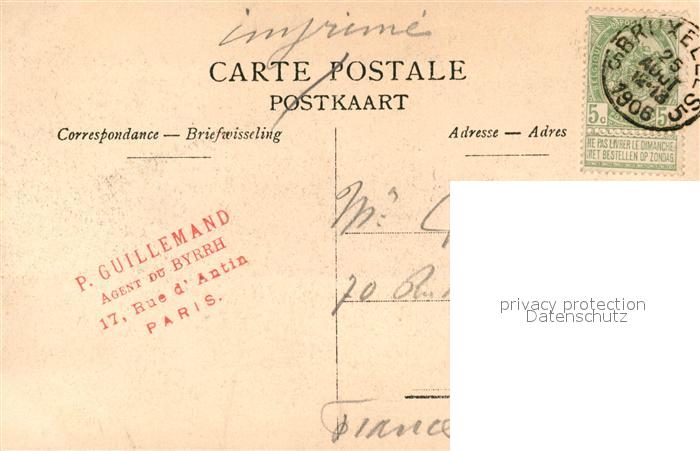 imprimé
CARTE POSTALE
POSTKAART
Correspondance — Briefwisseling
Adresse — Adres
BRUXELLES 5
25
AOUT
1906
BELGIQUE
5c 5c
NE PAS LIVRER LE DIMANCHE
NIET BESTELLEN OP ZONDAG
P. GUILLEMAND
AGENT DU BYRRH
17, Rue d'Antin
PARIS.
Mr
70 Rue
France
privacy protection
Datenschutz